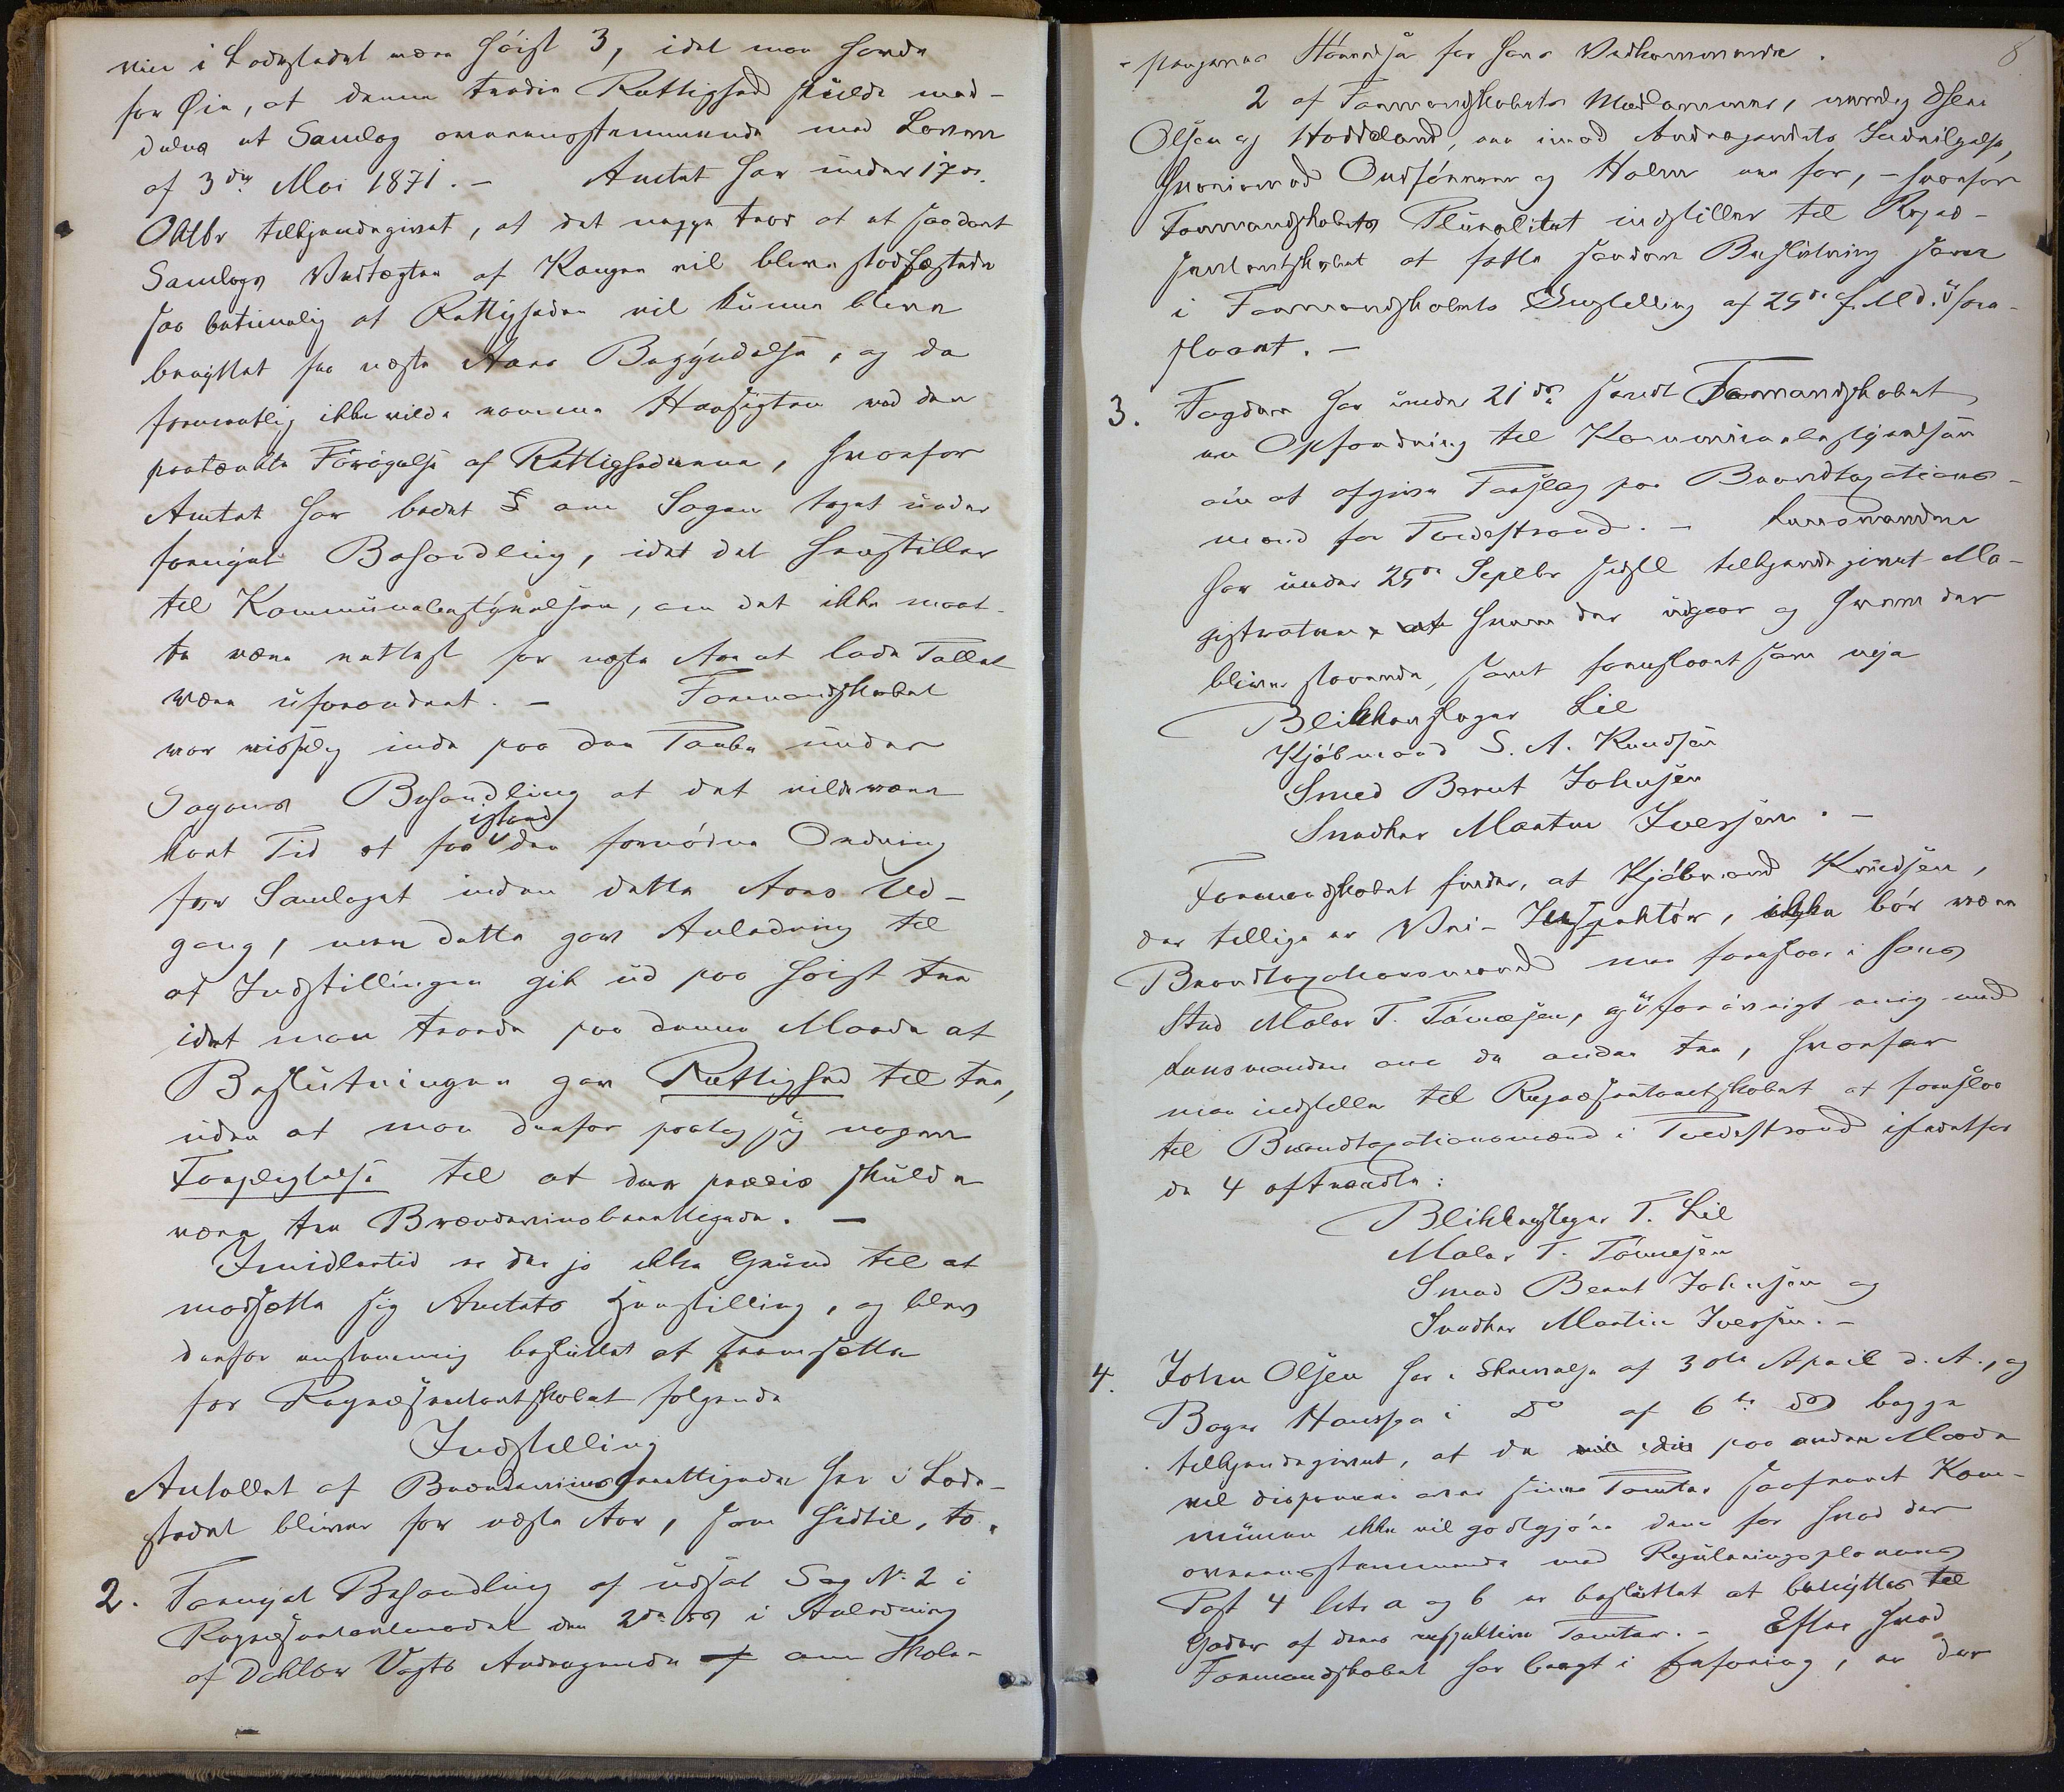 vin i Ladestedet være høist 3, idet man havde
for Øie, at denne tredie Rettighed skulde med-
deles et Samlag overensstemmende med Loven
af 3die Mai 1871. – Amtet har under 17de
Oktbr tilkjendegivet, at det neppe tror at et saadant
Samlags Vedtægter af Kongen vil blive stadfæstede
saa betimelig at Rettigheden vil kunne blive
benyttet fra næste Aars Begyndelse, og da
formentlig ikke vilde komme Hensigten med den
paatænkte Forøgelse af Rettighederne, hvorfor
Amtet har bedet om Sagen taget under
fornyet Behandling, idet det henstiller
til Kommunebestyrelsen, om det ikke maat-
te være rettest for næste Aar at lade Tallet
være uforandret. – Formandskabet
var visselig inde paa den Tanke under
Sagens Behandling at det vilde være
kort Tid at faa istand den fornødne Ordning
for Samlaget inden dette Aars Ud-
gang, men dette gav Anledning til
at Indstillingen gik ud paa høist tre
idet man troede paa denne Maade at
Beslutningen gav Rettighed til tre,
uden at man derfor paatog sig nogen
Forpligtelse til at der præcis skulde
være tre Brændevinsberettigede. –
Imidlertid er der jo ikke Grund til at
modsætte sig Amtets Henstilling, og blev
derfor enstemmig besluttet at fremsætte
for Repræsentantskabet følgende
Indstilling
Antallet af Brændevinsberettigede her i Lade-
stedet bliver for næste Aar, som hidtil, to.
2. Fornyet Behandling af udsat Sag No 2 i
Repræsentantmødet den 2den ds i Anledning
af Doktor Vogts Andragende om Skole-
8
pengenes Størrelse for hans Vedkommende.
2 af Formandskabets Medlemmer, nemlig
Olsen og Hoddeland, var imod Andragendets Indvilgelse,
hvorimod Ordføreren og Holm var for, – hvorfor
Formandskabets Pluralitet indstiller til Repræ-
sentantskabet at fatte saadan Beslutning som
i Formandskabets Indstilling af 25de f. Md. fore-
slaaet. –
3. Fogden har under 21de sendt Formandskabet
en Opfordring til Kommunebestyrelsen
om at afgive Forslag paa Brandtaxations-
mænd for Tvedestrand. – Lensmanden
har under 25de Septbr sidstl tilkjendegivet Ma-
gistraten hvem der udgaar og hvem der
bliver staaende, samt foreslaaet som nye
Blikkenslager Lie
Kjøbmand S. A. Knudsen
Smed Bernt Johnsen
Snedker Martin Iversen. –
Formandskabet finder, at Kjøbmand Knudsen,
der tillige er Vei-Inspektør, ikke bør være
Brandtaxationsmand men foreslaar i hans
Sted Maler T. Tønnesen, og er forøvrigt enig med
Lensmanden om de andre tre, hvorfor
man indstiller til Repræsentantskabet at foreslaa
til Brandtaxationsmænd i Tvedestrand istedetfor
de 4 aftraadte:
Blikkenslager T. Lie
Maler T. Tønnesen
Smed Bernt Johnsen og
Snedker Martin Iversen. –
4. John Olsen har i Skrivelse af 30te April d. A., og
Bager Hansson i Do af 6te ds begge
tilkjendegivet, at de paa anden Maade
vil disponere over sine Tomter saafremt Kom-
munen ikke vil godtgjøre dem for hvad der
overensstemmende med Reguleringsplanens
Post 4 litr a og b er besluttet at benyttes til
Gader af deres respektive Tomter. – Efter hvad
Formandskabet har bragt i Erfaring, er der